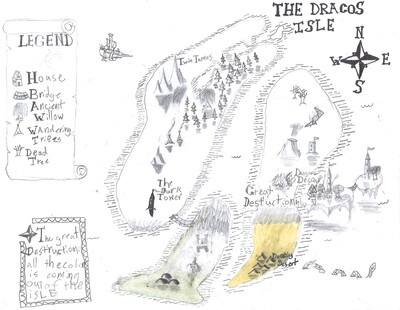 THE DRACOS
ISLE
N
W E
S
LEGEND
House
Bridge
Ancient
Willow
Wandering
Tribes
Dead
Tree
Twin Towers
The
Dark
Tower
Great
Destruction
Desert
The great
Destruction,
all the color
is coming
out of the
ISLE